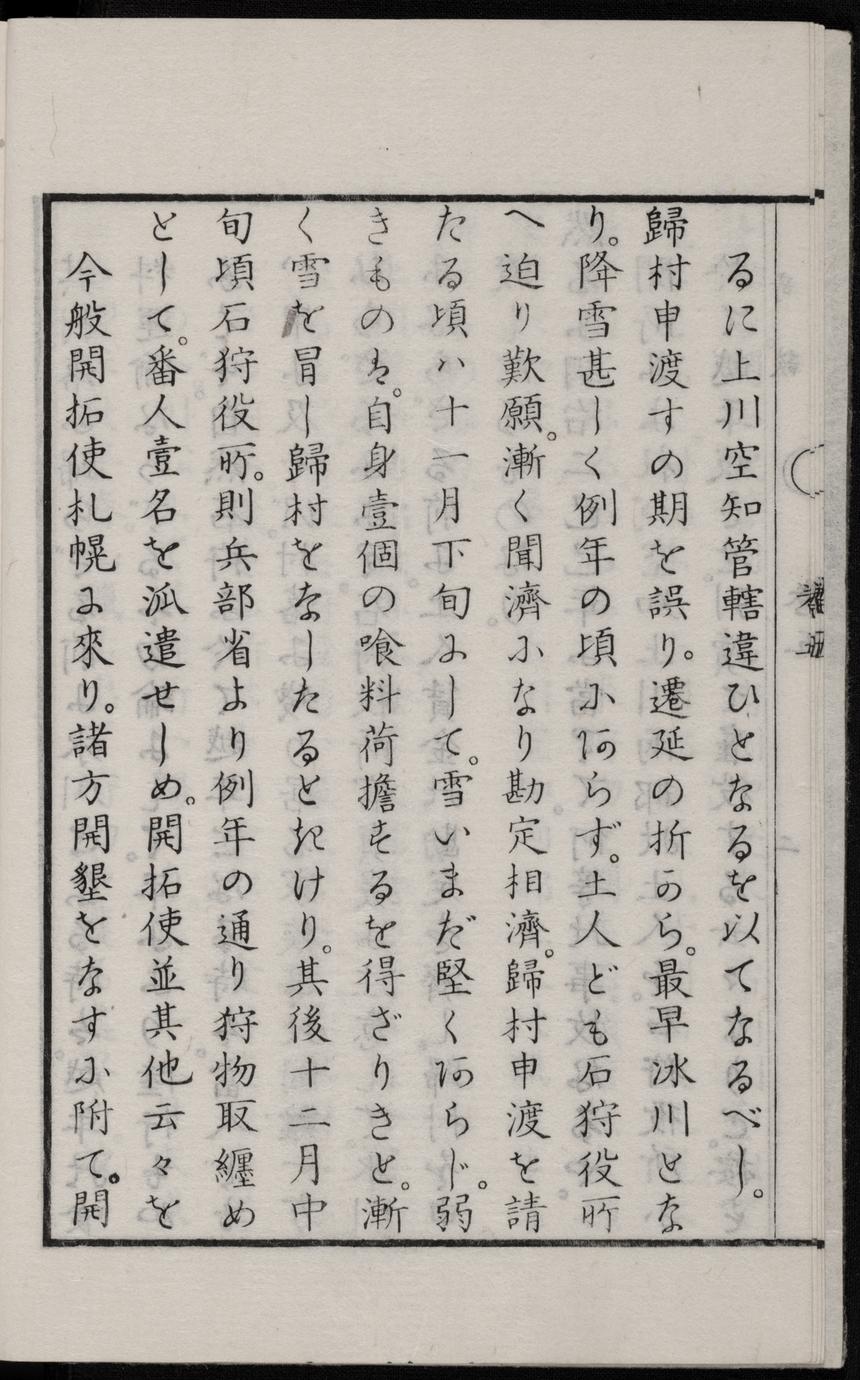 るに上川空知管轄違ひとなるを以てなるべし。
歸村申渡すの期を誤り。遷延の折から。最早冰川とな
り。降雪甚しく例年の頃にあらず。土人ども石狩役所
へ迫り歎願。漸く聞濟になり勘定相濟。歸村申渡を請
たる頃ハ十一月下旬にして。雪いまだ堅くあらじ。弱
きものは。自身壹個の喰料荷擔するを得ざりきと。漸
く雪を冒し歸村をなしたるときけり。其後十二月中
旬頃石狩役所。則兵部省より例年の通り狩物取纒め
として。番人壹名を派遣せしめ。開拓使並其他云々を
今般開拓使札幌に來り。諸方開墾をなすに附て。開